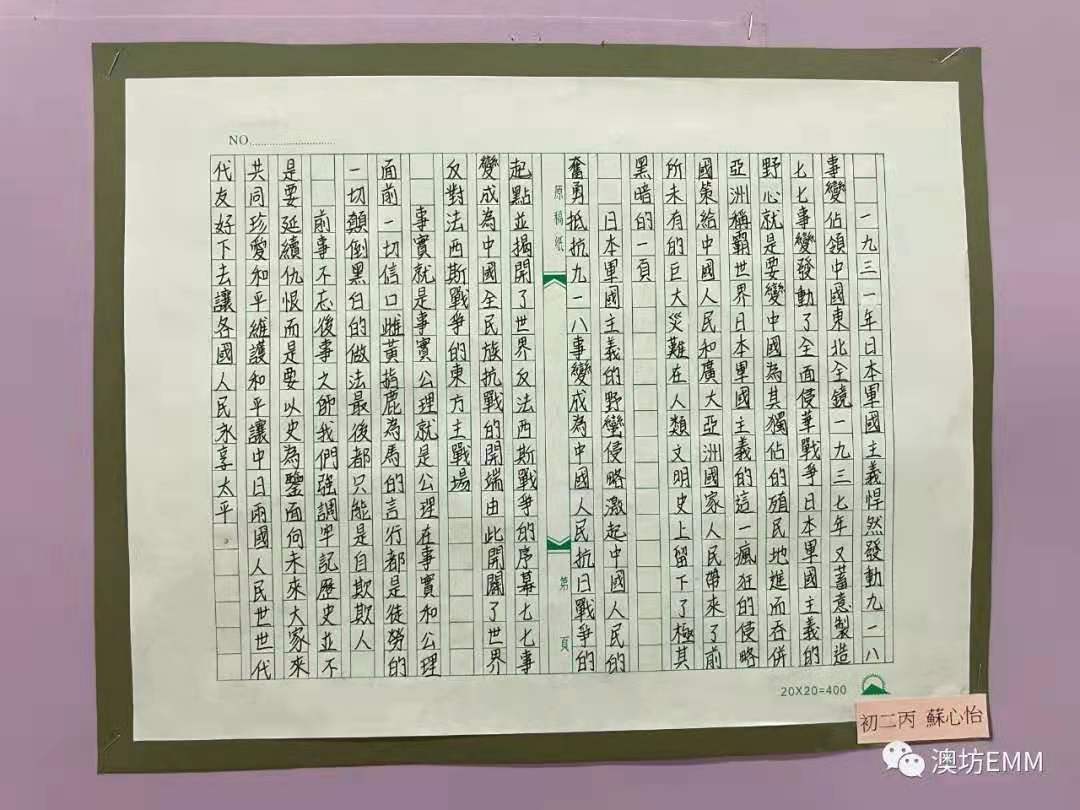 NO.
一九三一年日本軍國主義悍然發動九一八
事變佔領中國東北全鏡一九三七年又蓄意製造
七七事變發動了全面侵華戰爭日本軍國主義的
野心就是要變中國為其獨佔的殖民地進而吞併
亞洲稱霸世界日本軍國主義的這一瘋狂的侵略
國策給中國人民和廣大亞洲國家人民帶來了前
所未有的巨大災難在人類文明史上留下了極其
黑暗的一頁
日本軍國主義的野蠻侵略激起中國人民的
奮勇抵抗九一八事變成為中國人民抗日戰爭的
原稿紙
第 頁
起點並揭開了世界反法西斯戰爭的序幕七七事
變成為中國全民族抗戰的開端由此開闢了世界
反對法西斯戰爭的東方主戰場
事實就是事實公理就是公理在事實和公理
面前一切信口雌黃指鹿為馬的言行都是徒勞的
一切顛倒黑白的做法最後都只能是自欺欺人
前事不忘後事之師我們強調牢記歷史並不
是要延續仇恨而是要以史為鑒面向未來大家來
共同珍愛和平維護和平讓中日兩國人民世世代
代友好下去讓各國人民永享太平。
20X20=400
初二丙 蘇心怡
澳坊EMM